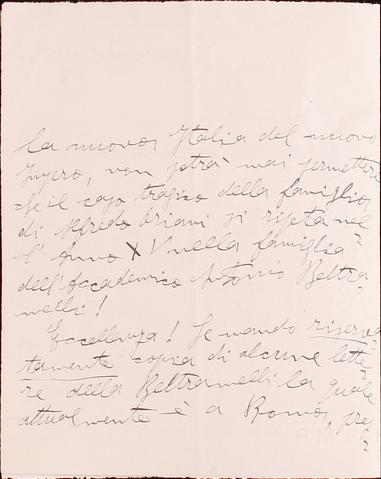 la nuova Italia del nuovo
Impero, non potrà mai permettere
che il caso tragico della famiglia
di Alfredo Oriani si ripeta nel
l'Anno XV nella famiglia
dell'Accademico Antonio Beltra=
melli!
Eccellenza! Le mando riserva=
tamente copia di alcune lette=
re della Beltramelli la quale
attualmente è a Roma, pre=